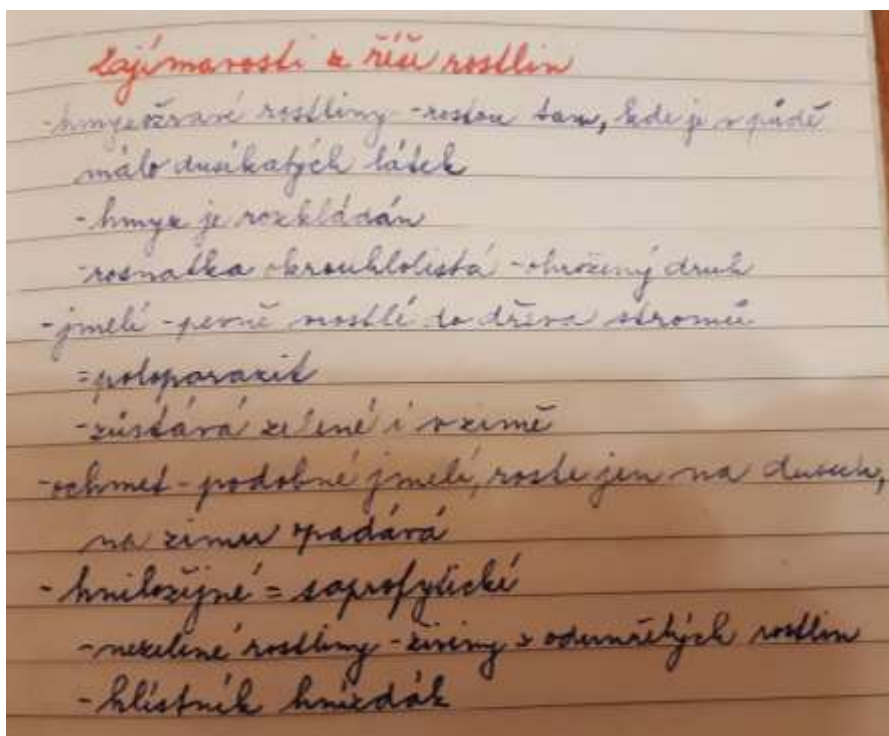 Zajímavosti z říše rostlin
-hmyzožravé rostliny -rostou tam, kde je v půdě
málo dusíkatých látek
-hmyz je rozkládán
-rosnatka okrouhlolistá -ohrožený druh
-jmelí -pevně vrostlé do dřeva stromů
=poloparazit
-zůstává zelené i v zimě
-ochmet - podobné jmelí, roste jen na dubech,
na zimu opadává
- hniložijné = saprofytické
-nezelené rostliny -živiny z odumřelých rostlin
- hlístník hnízdák